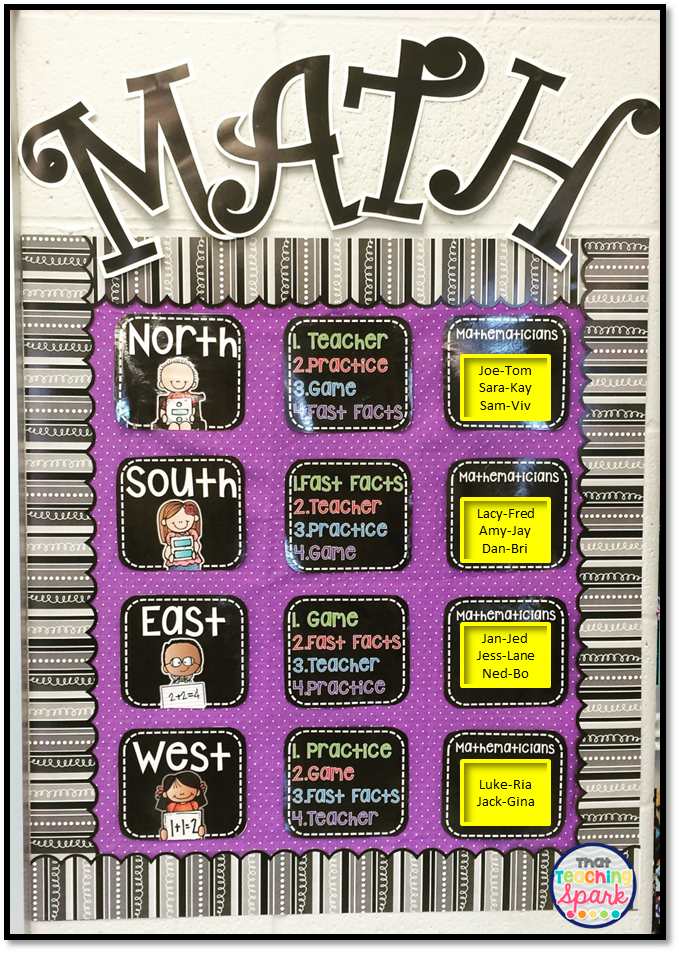 MATH
North
1. Teacher
2.Practice
3.Game
4.Fast Facts
Mathematicians
Joe-Tom
Sara-Kay
Sam-Viv
South
1.Fast Facts
2.Teacher
3.Practice
4.Game
Mathematicians
Lacy-Fred
Amy-Jay
Dan-Bri
East
2+2=4
1. Game
2.Fast Facts
3.Teacher
4.Practice
Mathematicians
Jan-Jed
Jess-Lane
Ned-Bo
West
1+1=2
1. Practice
2.Game
3.Fast Facts
4.Teacher
Mathematicians
Luke-Ria
Jack-Gina
That
Teaching
Spark